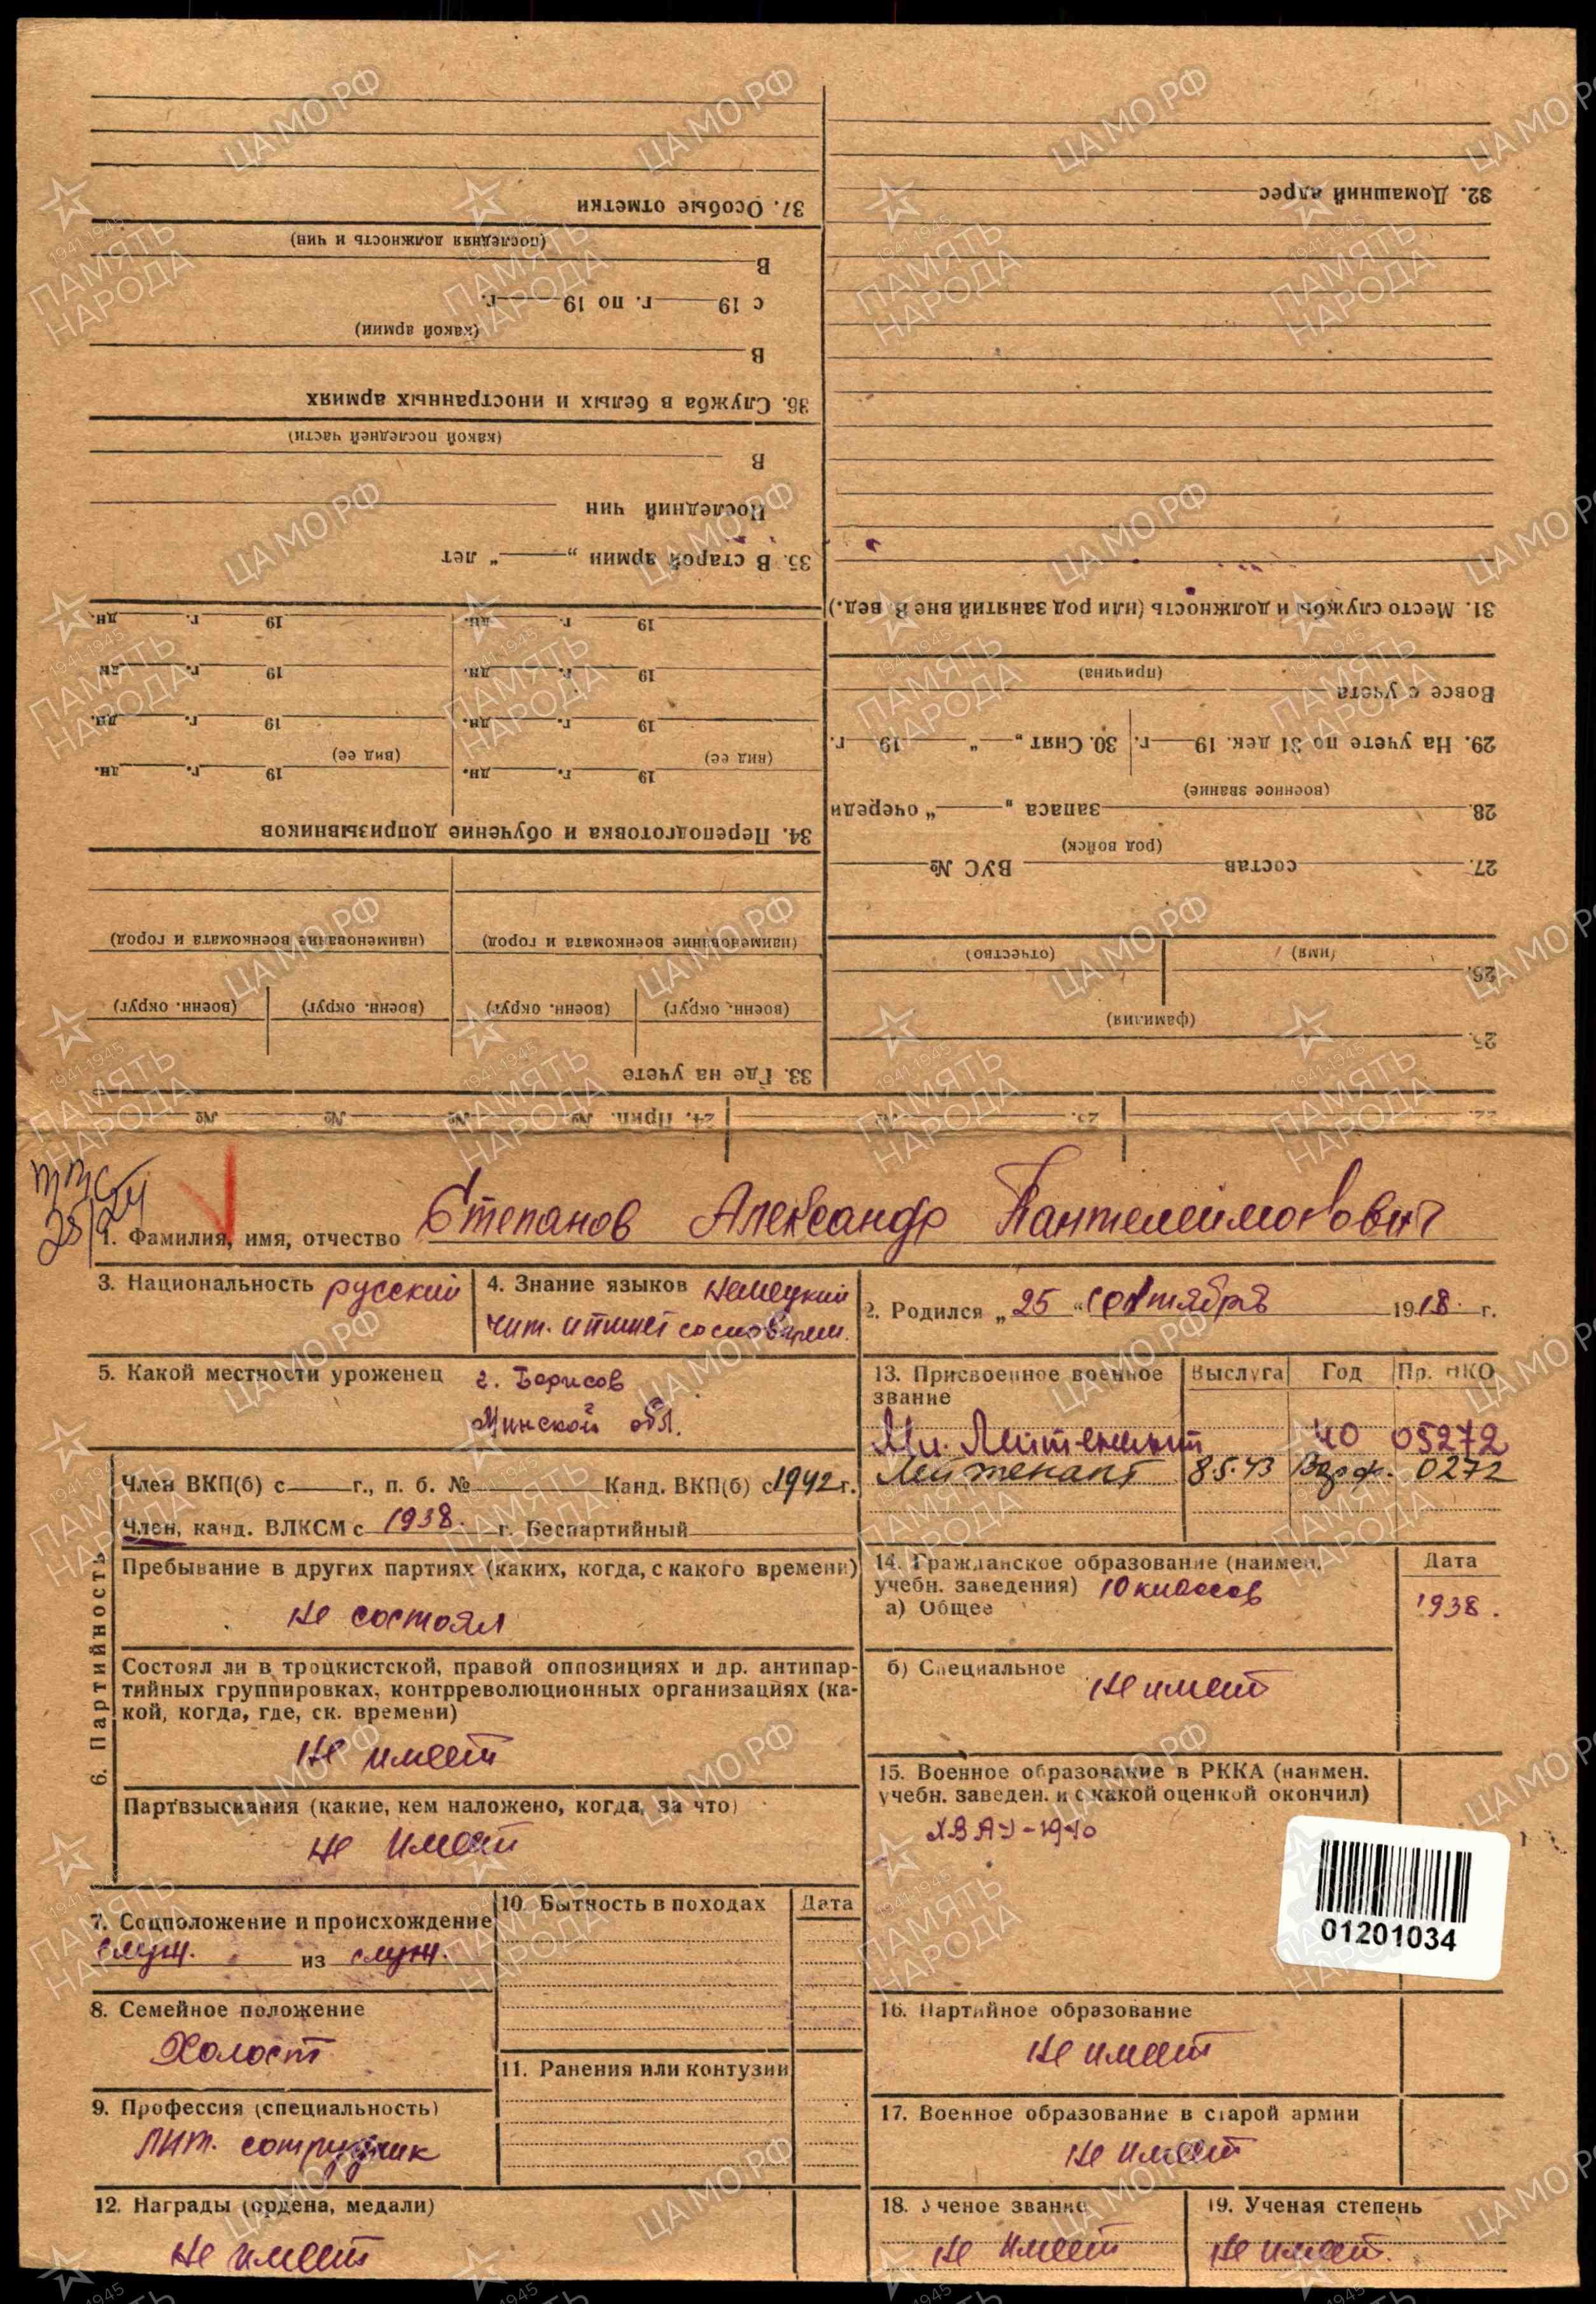 1. Фамилия, имя, отчество Степанов Александр Пантелеймонович
3. Национальность русский
4. Знание языков немецкий
чит. и пишет со словарем.
2. Родился „25" 1918 г.
5. Какой местности уроженец г. Борисов
Минской обл.
13. Присвоенное военное звание
Выслуга
Год
Пр. НКО
Мл. Лейтенант 40 05272
Лейтенант 8.5.43 0272
6. Партийность
Член ВКП(б) с г., п. б. № Канд. ВКП(б) с 1942 г.
Член, канд. ВЛКСМ с 1938. г. Беспартийный
Пребывание в других партиях (каких, когда, с какого времени)
не состоял
Состоял ли в троцкистской, правой оппозициях и др. антипар-
тийных группировках, контрреволюционных организациях (ка-
кой, когда, где, ск. времени)
не имеет
Партвзыскания (какие, кем наложено, когда, за что)
не имеет
14. Гражданское образование (наимен.
учебн. заведения) 10 классов
а) Общее
Дата
1938.
б) Специальное
не имеет
15. Военное образование в РККА (наимен.
учебн. заведен. и с какой оценкой окончил)
ХВАУ-1940
01201034
7. Соцположение и происхождение
служ. из служ.
8. Семейное положение
Холост
9. Профессия (специальность)
лит. сотрудник
10. Бытность в походах
Дата
11. Ранения или контузии
12. Награды (ордена, медали)
не имеет
16. Партийное образование
не имеет
17. Военное образование в старой армии
не имеет
18. Ученое звание
не имеет
19. Ученая степень
не имеет.
22.
23.
24. Прип. № № № №
25.
(фамилия)
26.
(имя)
(отчество)
27. состав ВУС №
(род войск)
28. запаса „ " очереди
(военное звание)
29. На учете по 31 дек. 19 г.
30. Снят „ " 19 г.
Вовсе с учета
(причина)
31. Место службы и должность (или род занятий вне В. вед.)
32. Домашний адрес
33. Где на учете
(военн. округ) (военн. округ) (военн. округ) (военн. округ)
(наименование военкомата и город) (наименование военкомата и город)
34. Переподготовка и обучение допризывников
19 г. дн. 19 г. дн.
(вид ее) (вид ее)
19 г. дн. 19 г. дн.
19 г. дн. 19 г. дн.
19 г. дн. 19 г. дн.
35. В старой армии „ " лет
Последний чин
В
(какой последней части)
36. Служба в белых и иностранных армиях
В
(какой армии)
с 19 г. по 19 г.
В
(последняя должность и чин)
37. Особые отметки
ЦАМО РФ
1941-1945
ПАМЯТЬ
НАРОДА